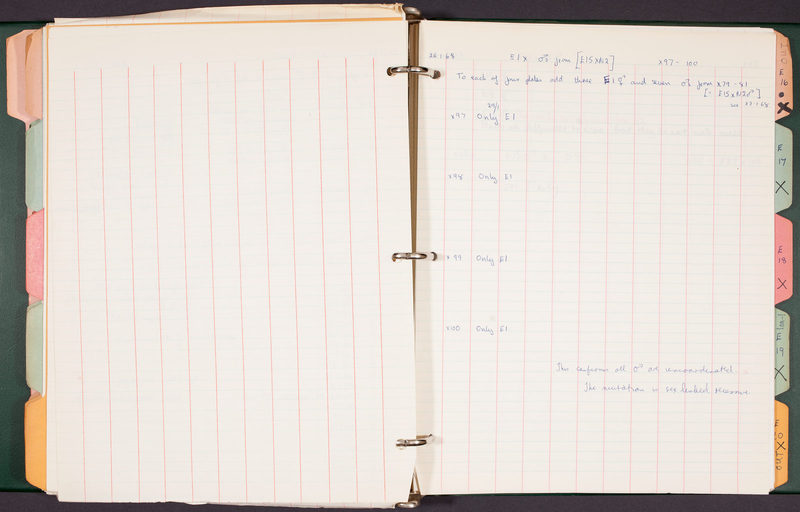 26.1.68 E1 x ♂s from [E15 x N2] x97 - 100
To each of four plates add three E1 ♀ and seven ♂s from x79 - 81
[= E15 x N2♂]
29/1
x97 Only E1
x98 Only E1
x99 Only E1
x100 Only E1
This confirms all ♂s are uncoordinated.
The mutation is sex linked recessive
E
16
X
E
17
X
E
18
X
E
19
X
E
X
OUT